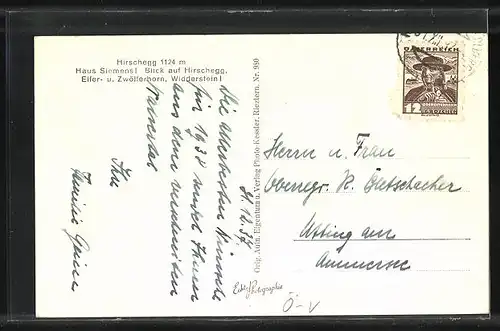 Hirschegg 1124 m
Haus Siemens! Blick auf Hirschegg,
Elfer- u. Zwölferhorn, Widderstein!
31.12.37.
Die allerbesten Wünsche
für 1938 
aus dem verschneiten
Walsertal
Ihre
Familie
Orig. Aufn. Eigentum u. Verlag Photo-Kessler, Riezlern. Nr. 950
Echte Photographie
ÖSTERREICH
12
GROSCHEN
Herrn u. Frau
Oberregr. R.
Utting am
Ammersee
Ö-V